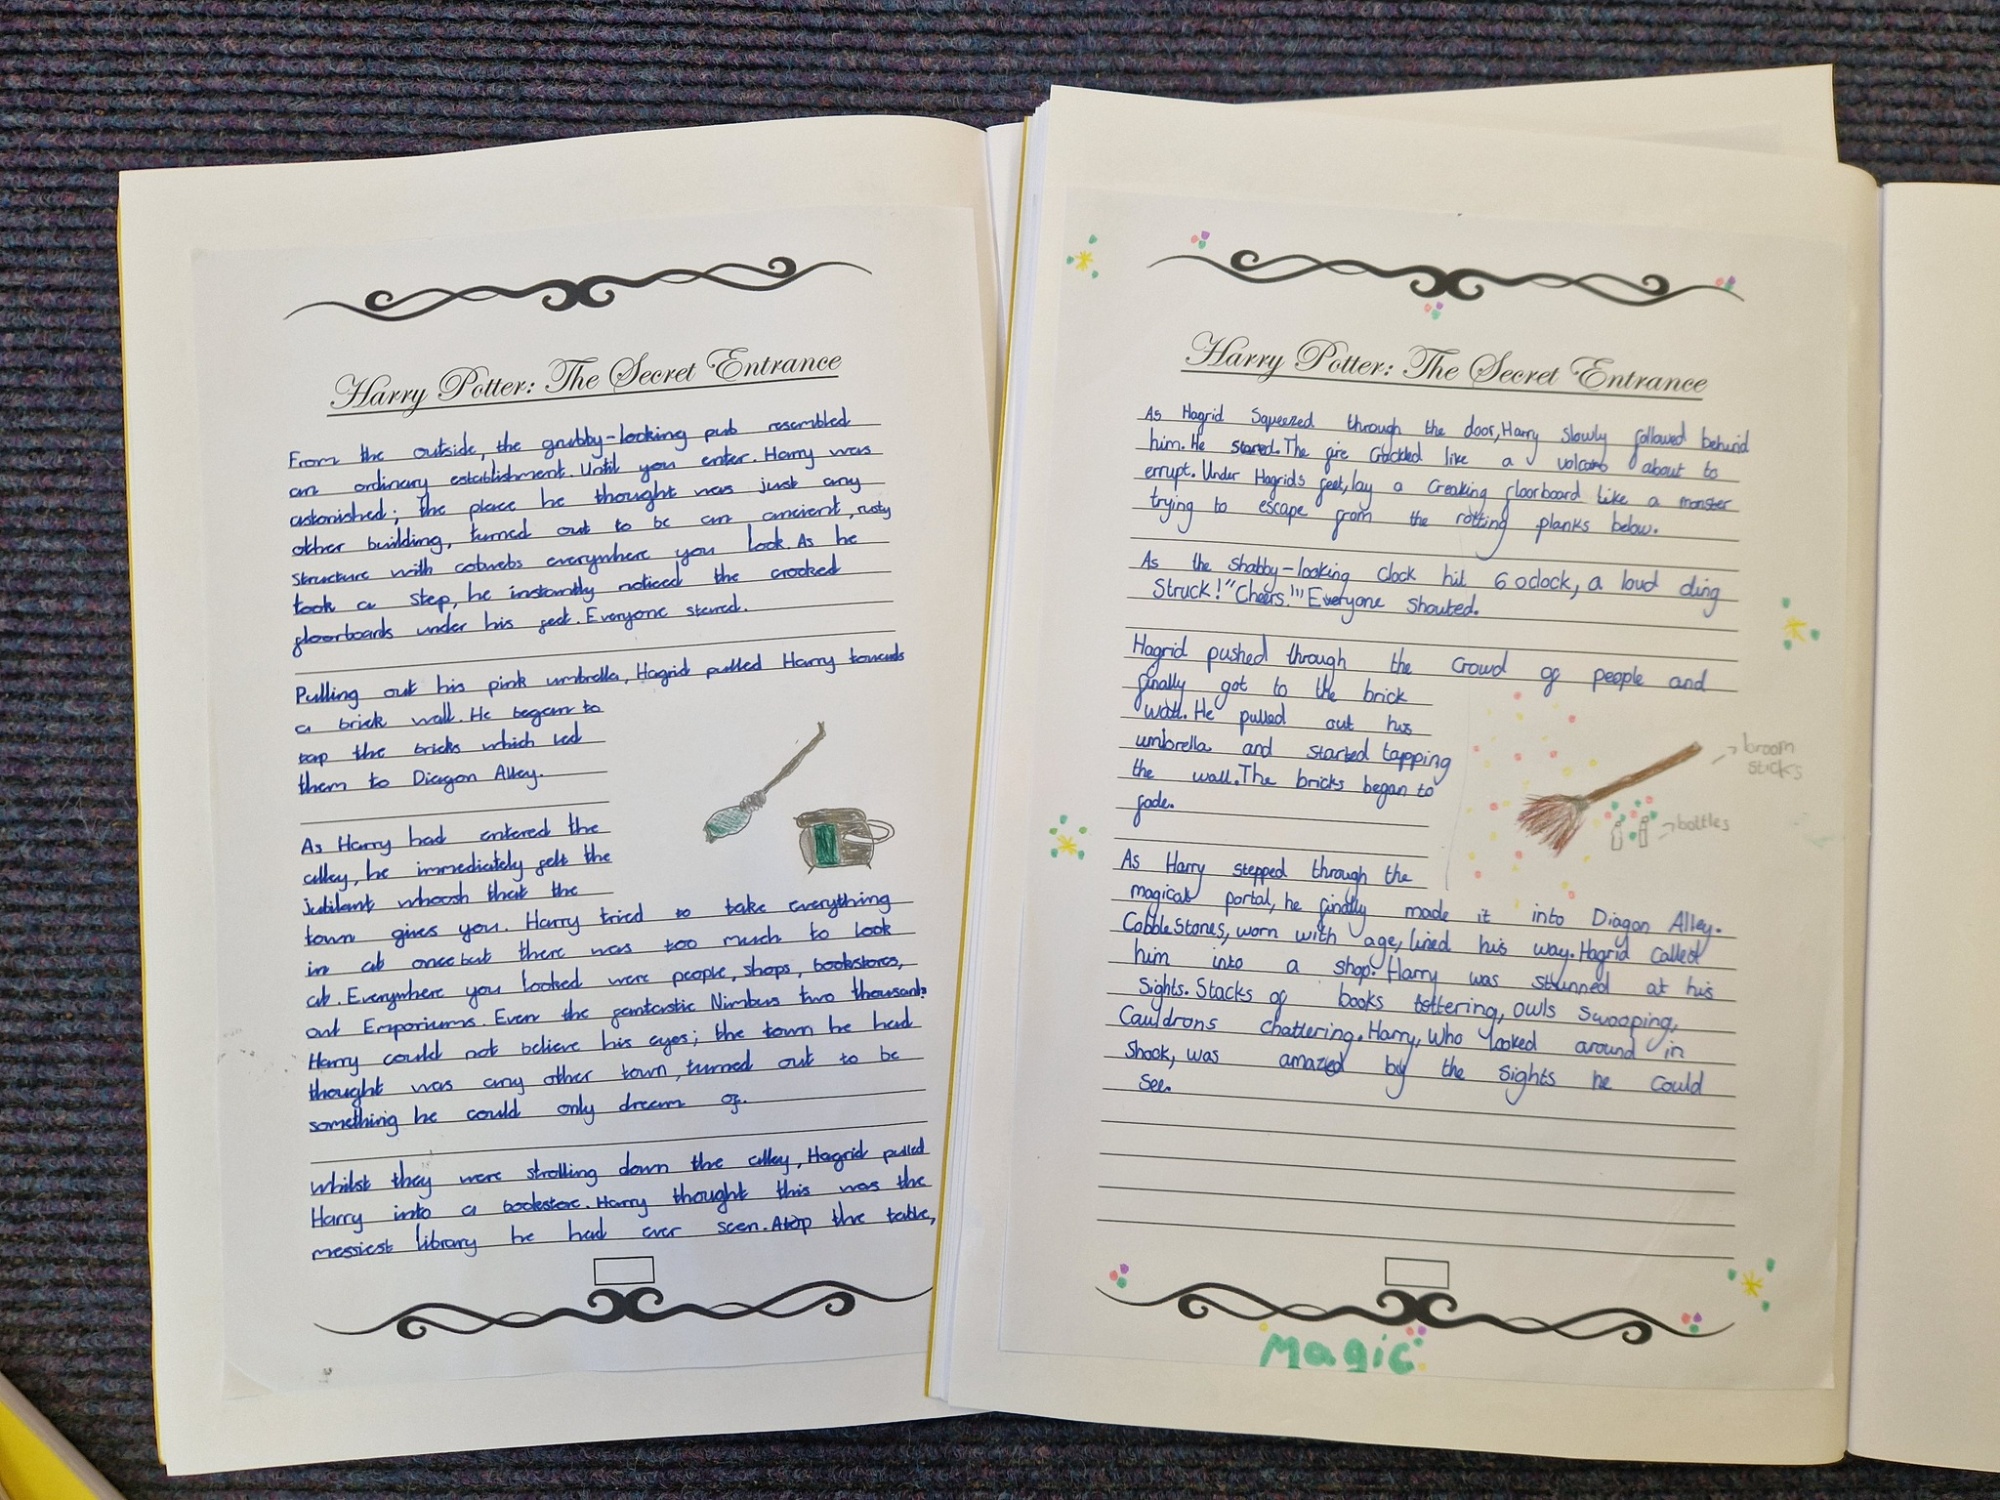 Harry Potter: The Secret Entrance
From the outside, the grubby-looking pub resembled
an ordinary establishment. Until you enter. Harry was
astonished; the place he thought was just any
other building, turned out to be an ancient, rusty
structure with cobwebs everywhere you look. As he
took a step, he instantly noticed the crooked
floorboards under his feet. Everyone stared.
Pulling out his pink umbrella, Hagrid pulled Harry towards
a brick wall. He began to
tap the bricks which led
them to Diagon Alley.
As Harry had entered the
alley, he immediately felt the
jubilant whoosh that the
town gives you. Harry tried to take everything
in all once but there was too much to look
at. Everywhere you looked were people, shops, bookstores,
owl Emporiums. Even the fantastic Nimbus two thousand.
Harry could not believe his eyes; the town he had
thought was any other town, turned out to be
something he could only dream of.
Whilst they were strolling down the alley, Hagrid pulled
Harry into a bookstore. Harry thought this was the
messiest library he had ever seen. Atop the table,
Harry Potter: The Secret Entrance
As Hagrid Squeezed through the door, Harry slowly followed behind
him. He stared. The fire Crackled like a volcano about to
errupt. Under Hagrids feet, lay a Creaking floorboard like a monster
trying to escape from the rotting planks below.
As the shabby-looking clock hit 6 oclock, a loud ding
Struck! "Cheers!" Everyone shouted.
Hagrid pushed through the Crowd of people and
finally got to the brick
wall. He pulled out his
umbrella and started tapping
the wall. The bricks began to
fade.
broom
sticks
bottles
As Harry stepped through the
magical portal, he finally made it into Diagon Alley.
CobbleStones, worn with age, lined his way. Hagrid Called
him into a shop. Harry was stunned at his
Sights. Stacks of books tottering, owls swooping,
Cauldrons chattering. Harry, Who looked around in
Shock, was amazed by the Sights he Could
See.
Magic